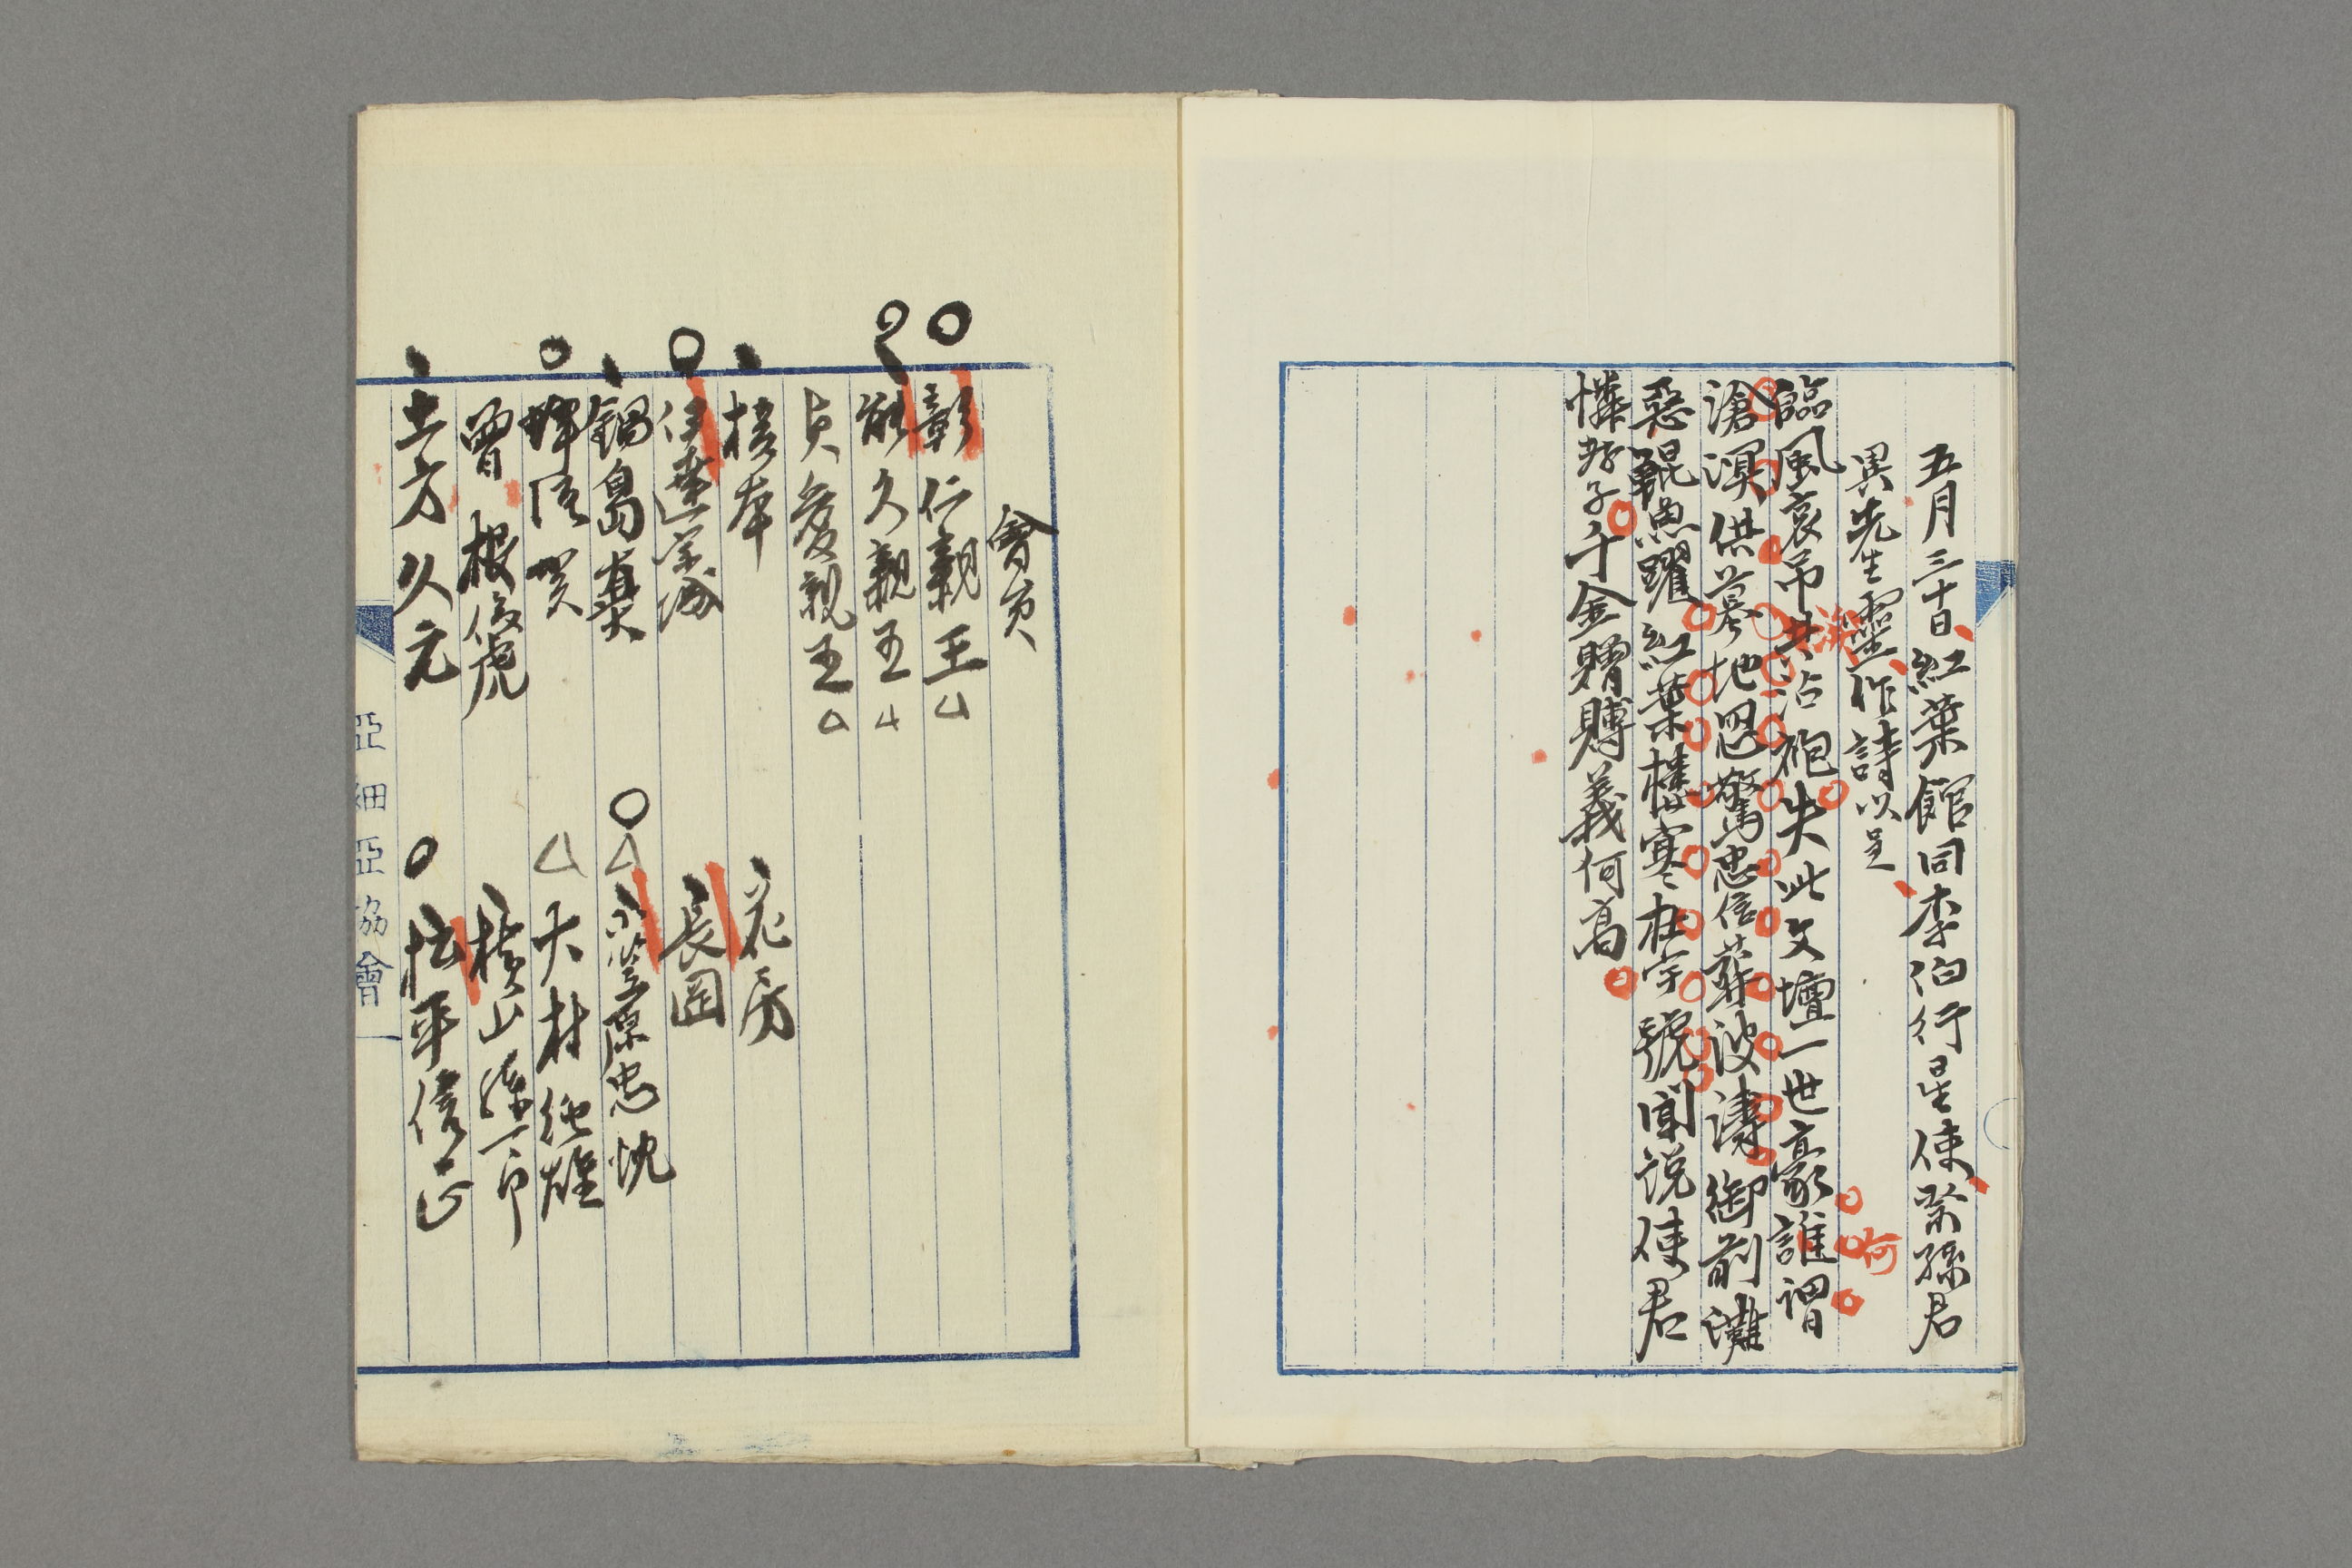 五月三十日紅葉館同李伯行星使祭孫君
異先生靈作詩以呈
臨風哀吊共沾袍失此文壇一世豪誰謂
滄溟供墓地思驚忠信葬波濤御前灘
惡鯤魚躍紅葉樓寒杜宇號聞説使君
憐孝子千金贈賻義何高
何
會員
彰仁親王△
能久親王△
貞愛親王△
榎本
花房
伊達宗城
長岡
鍋島直大
小笠原忠忱
△大村純雄
曽根俊虎
横山孫一郎
土方久元
松平信正
亞細亞協會